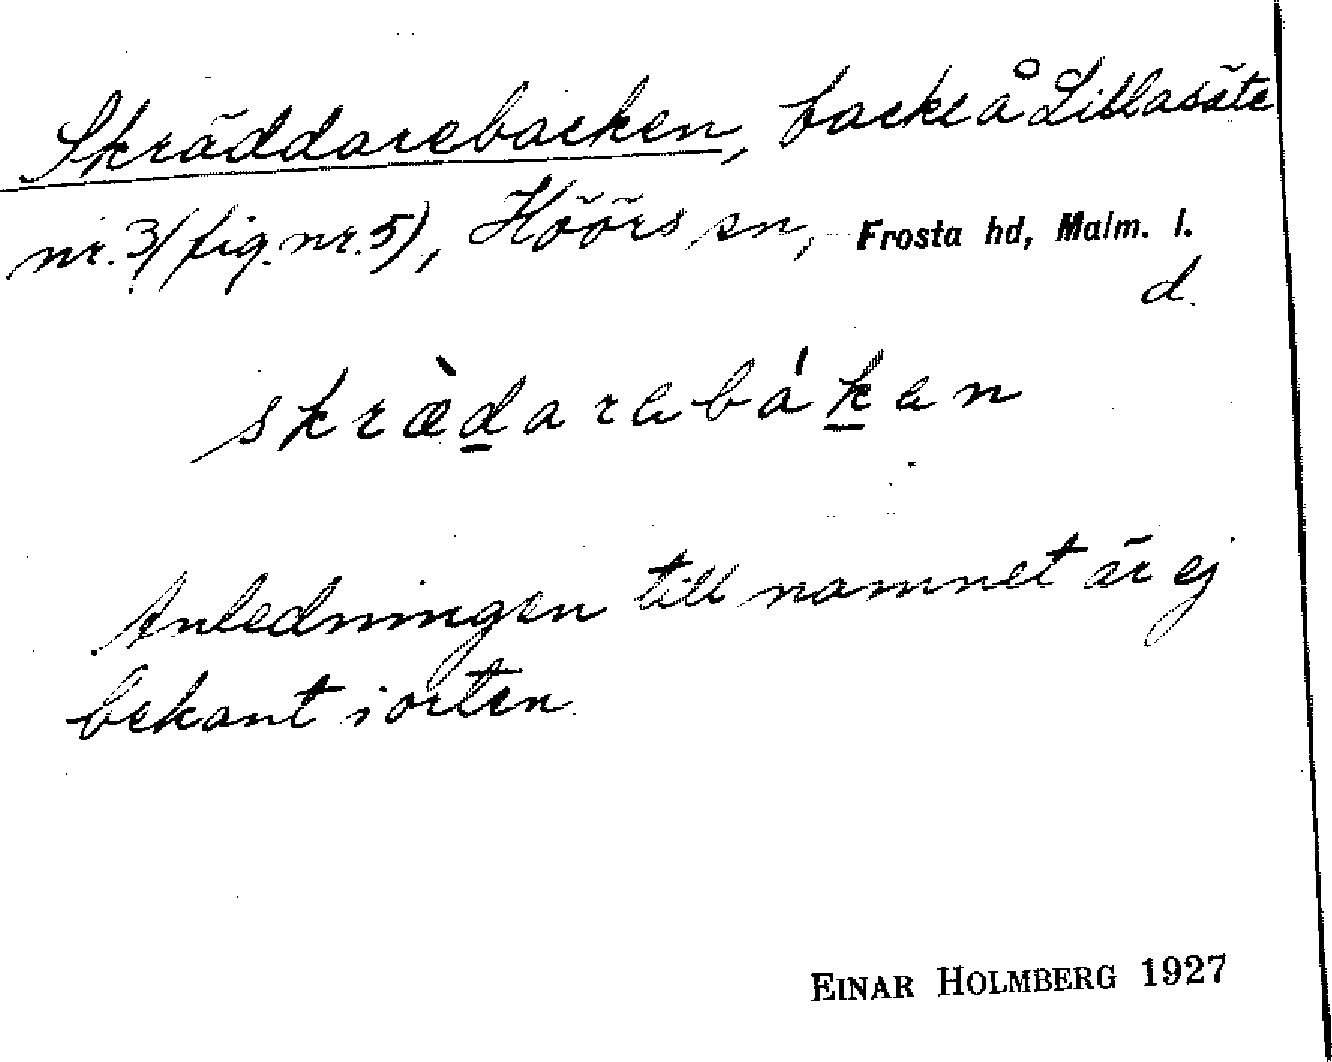 Skräddarebacken, backe å Lillasäte
nr. 3 (fig. nr. 5), Höörs sn, Frosta hd, Malm. l.
d.
skræ̀darabákan
Anledningen till namnet är ej
bekant i orten.
EINAR HOLMBERG 1927